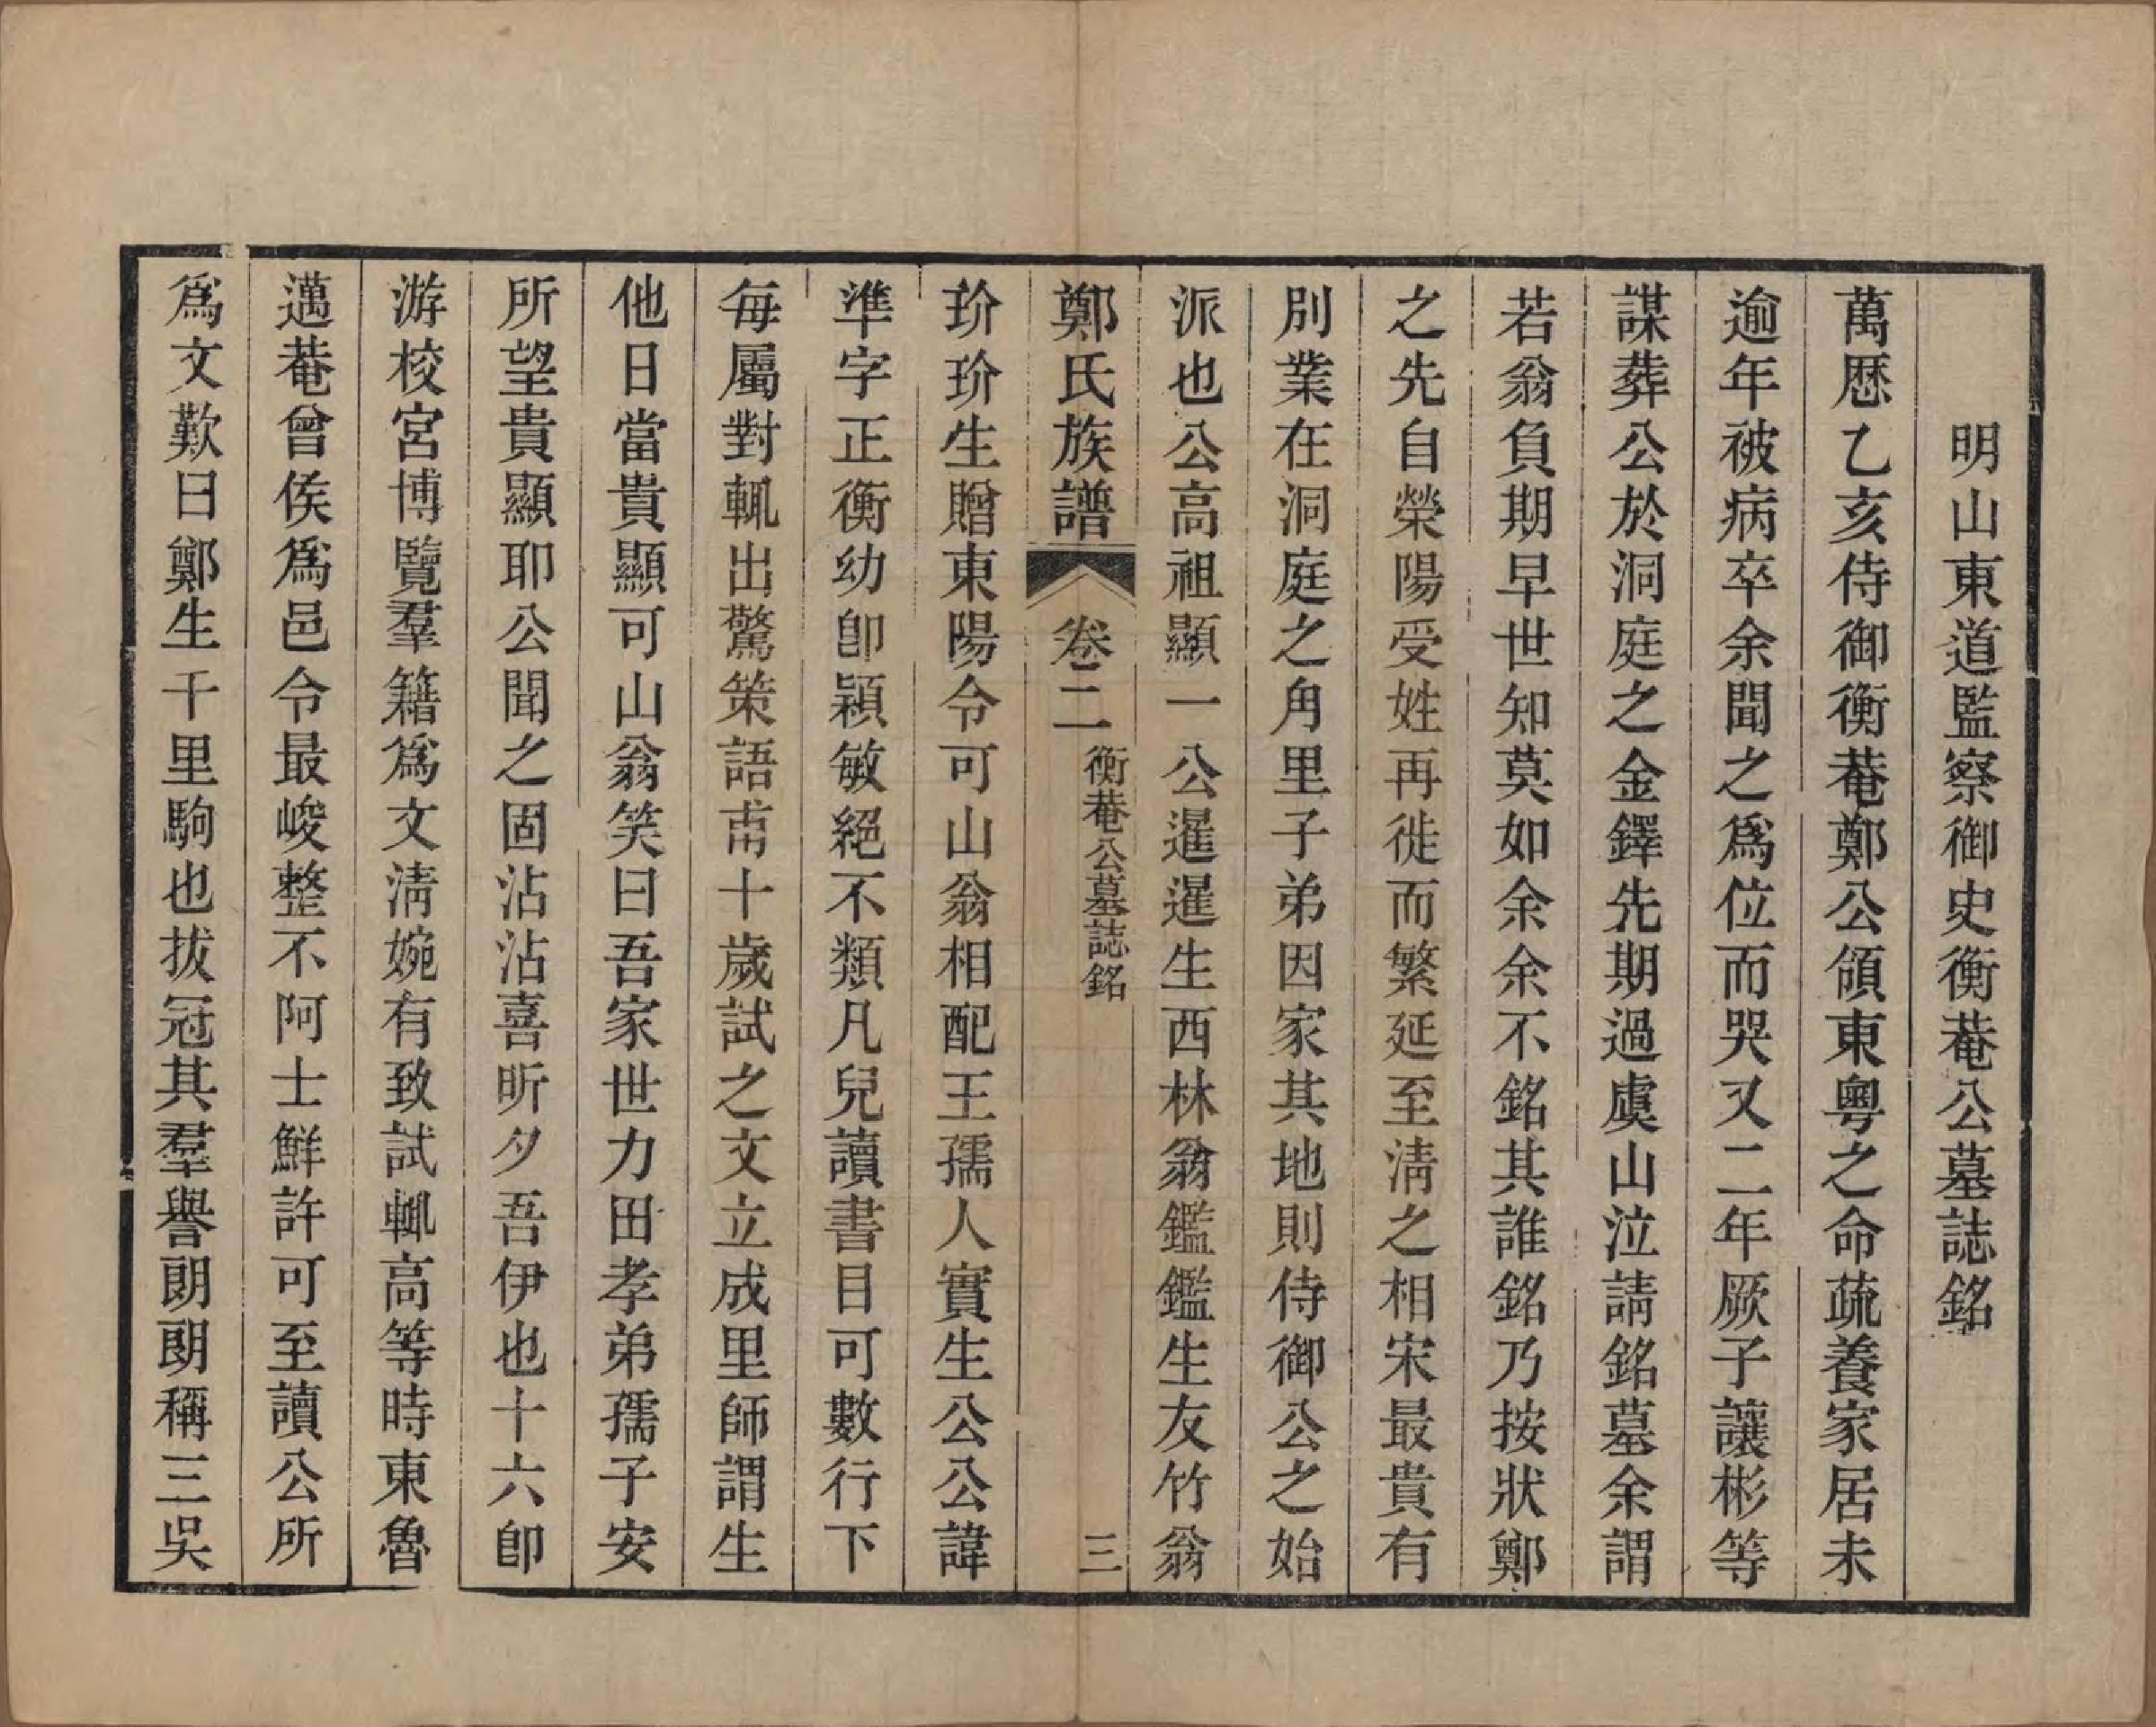 明山東道監察御史衡菴公墓誌銘
萬歷乙亥侍御衡菴鄭公領東粵之命疏養家居未
逾年被病卒余聞之爲位而哭又二年厥子讓彬等
謀葬公於洞庭之金鐸先期過虞山泣請銘墓余謂
若翁負期早世知莫如余余不銘其誰銘乃按狀鄭
之先自榮陽受姓再徙而繁延至淸之相宋最貴有
別業在洞庭之甪里子弟因家其地則侍御公之始
派也公高祖顯一公暹暹生西林翁鑑鑑生友竹翁
鄭氏族譜 卷二 衡菴公墓誌銘 三
玠玠生贈東陽令可山翁相配王孺人實生公公諱
準字正衡幼卽穎敏絕不類凡兒讀書目可數行下
每屬對輒出驚策語甫十歲試之文立成里師謂生
他日當貴顯可山翁笑曰吾家世力田孝弟孺子安
所望貴顯耶公聞之固沾沾喜昕夕吾伊也十六卽
游校宮博覽羣籍爲文淸婉有致試輒高等時東魯
邁菴曾侯爲邑令最峻整不阿士鮮許可至讀公所
爲文歎曰鄭生千里駒也拔冠其羣譽朗朗稱三吳